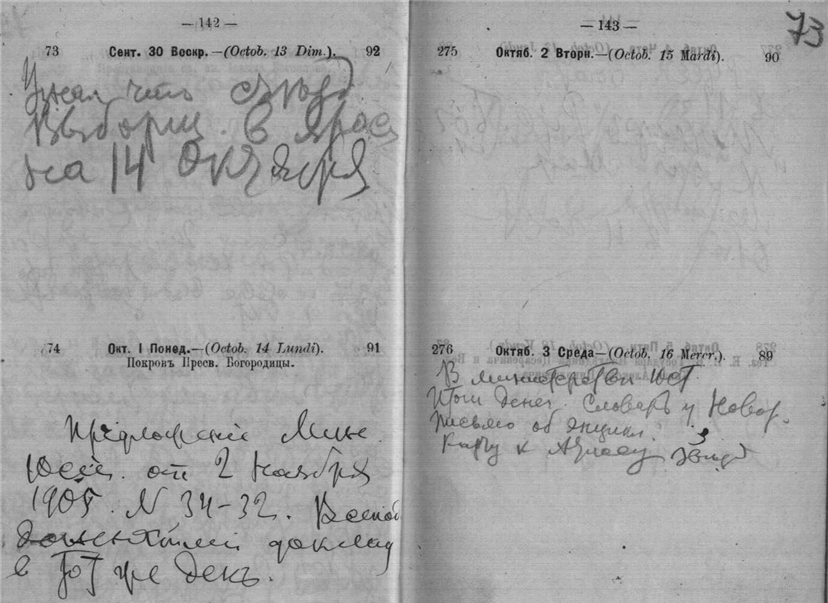 — 142 —
73 Сент. 30 Воскр.—(Octob. 13 Dim.). 92
Узнал что съезд
выборщ. в Яросл
на 14 Октября
74 Окт. 1 Понед.—(Octob. 14 Lundi). 91
Покровъ Пресв. Богородицы.
Предложенiе Мин.
Юст. от 2 Ноября
1905 N 34-32.
доклад
в тот же день.
— 143 —
73
275 Октяб. 2 Вторн.—(Octob. 15 Mardi). 90
276 Октяб. 3 Среда—(Octob. 16 Mercr.). 89
В министерстви Юст
денег. Словарь у Новор.
письмо об энцикл.
Карту к Атласу